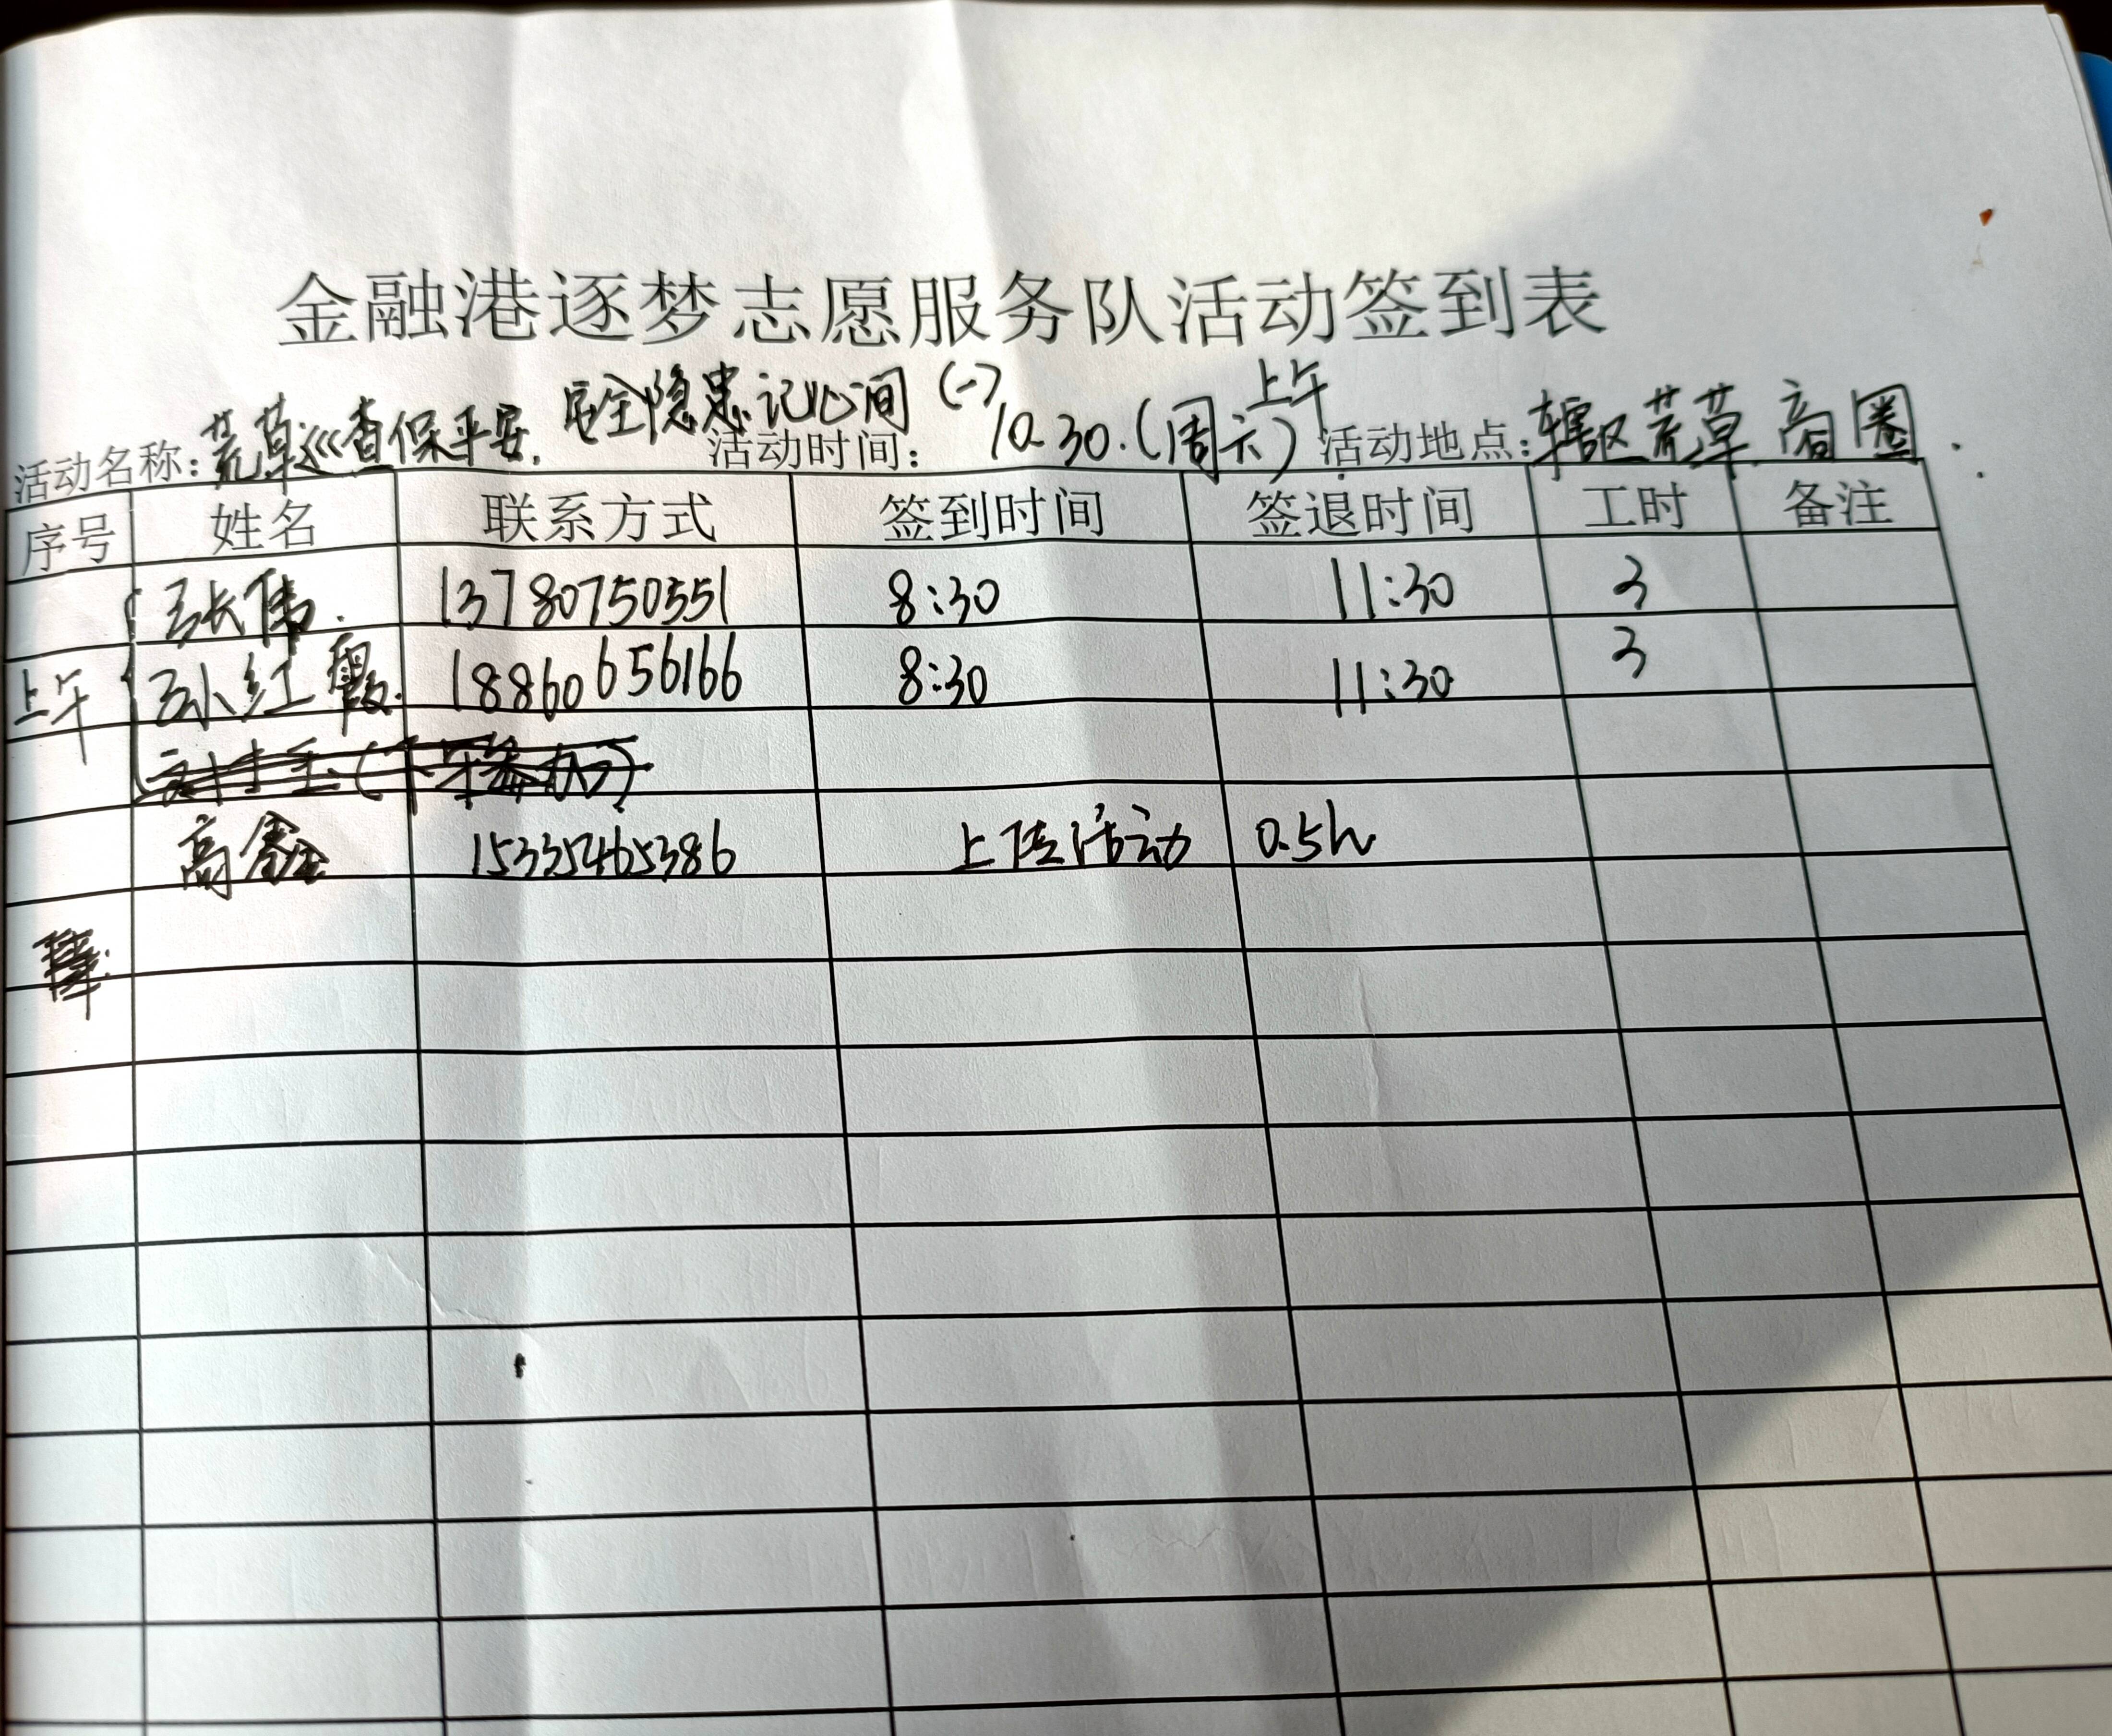 金融港逐梦志愿服务队活动签到表
安全隐患记心间 (一) 上午
活动名称:荒草巡查保平安. 活动时间: 10.30.(周六) 活动地点:辖区荒草 商圈.
序号 姓名 联系方式 签到时间 签退时间 工时 备注
张伟. 13780750551 8:30 11:30 3
上午 孙红霞. 18860656166 8:30 11:30 3
高鑫 15335465386 上传活动 0.5h